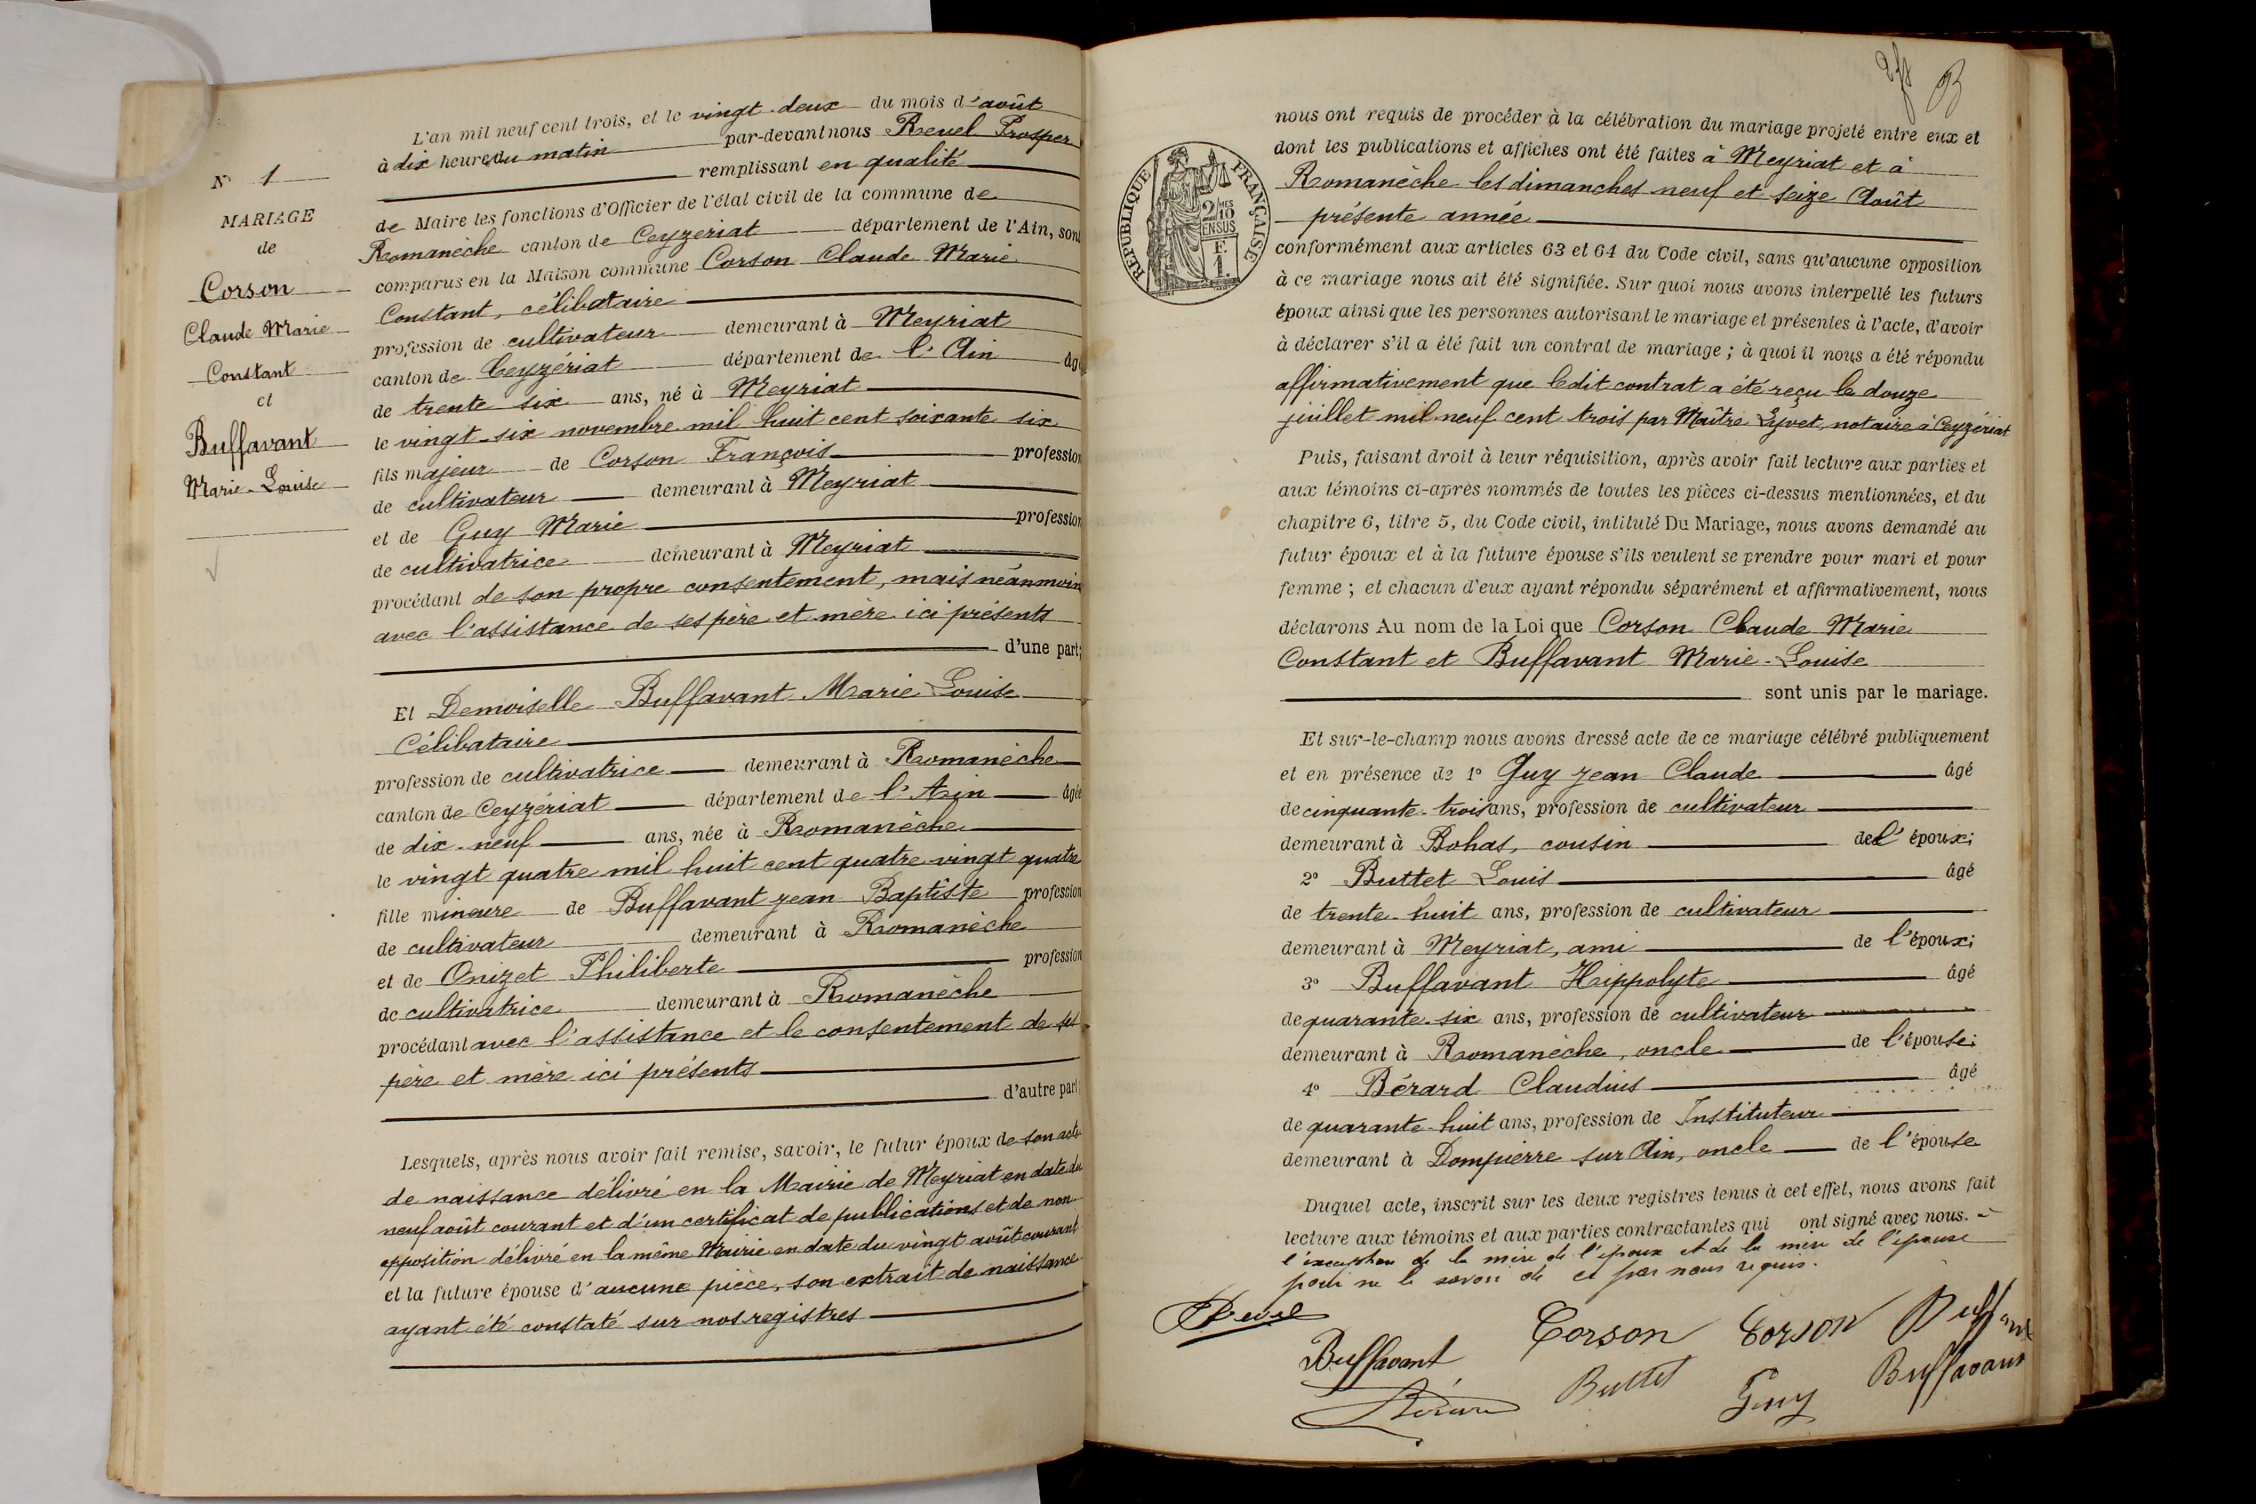 N° 1
MARIAGE
de
Corson
Claude Marie
Constant
et
Buffavant
Marie-Louise
L'an mil neuf cent trois, et le vingt-deux du mois d'août
à dix heures du matin par-devant nous Revel Prosper
remplissant en qualité
de Maire les fonctions d'Officier de l'état civil de la commune de
Romanèche canton de Ceyzeriat département de l'Ain, sont
comparus en la Maison commune Corson Claude Marie
Constant, célibataire
profession de cultivateur demeurant à Meyriat
canton de Ceyzériat département de l'Ain âgé
de trente six ans, né à Meyriat
le vingt-six novembre mil huit cent soixante six
fils majeur de Corson François profession
de cultivateur demeurant à Meyriat
et de Guy Marie profession
de cultivatrice demeurant à Meyriat
procédant de son propre consentement, mais néanmoins
avec l'assistance de ses père et mère ici présents
d'une part;
Et Demoiselle Buffavant Marie Louise
Célibataire
profession de cultivatrice demeurant à Romanèche
canton de Ceyzériat département de l'Ain âgée
de dix-neuf ans, née à Romanèche
le vingt quatre mil huit cent quatre-vingt quatre
fille mineure de Buffavant Jean Baptiste profession
de cultivateur demeurant à Romanèche
et de Onizet Philiberte profession
de cultivatrice demeurant à Romanèche
procédant avec l'assistance et le consentement de ses
père et mère ici présents
d'autre part;
Lesquels, après nous avoir fait remise, savoir, le futur époux de son acte
de naissance délivré en la Mairie de Meyriat en date du
neuf août courant et d'un certificat de publications et de non-
opposition délivré en la même Mairie en date du vingt août courant
et la future épouse d'aucune pièce, son extrait de naissance
ayant été constaté sur nos registres
RÉPUBLIQUE FRANÇAISE
2/10 EN SUS
F. 1.
nous ont requis de procéder à la célébration du mariage projeté entre eux et
dont les publications et affiches ont été faites à Meyriat et à
Romanèche les dimanches neuf et seize Août
présente année
conformément aux articles 63 et 64 du Code civil, sans qu'aucune opposition
à ce mariage nous ait été signifiée. Sur quoi nous avons interpellé les futurs
époux ainsi que les personnes autorisant le mariage et présentes à l'acte, d'avoir
à déclarer s'il a été fait un contrat de mariage ; à quoi il nous a été répondu
affirmativement que ledit contrat a été reçu le douze
juillet mil neuf cent trois par Maître notaire à Ceyzériat
Puis, faisant droit à leur réquisition, après avoir fait lecture aux parties et
aux témoins ci-après nommés de toutes les pièces ci-dessus mentionnées, et du
chapitre 6, titre 5, du Code civil, intitulé Du Mariage, nous avons demandé au
futur époux et à la future épouse s'ils veulent se prendre pour mari et pour
femme ; et chacun d'eux ayant répondu séparément et affirmativement, nous
déclarons Au nom de la Loi que Corson Claude Marie
Constant et Buffavant Marie-Louise
sont unis par le mariage.
Et sur-le-champ nous avons dressé acte de ce mariage célébré publiquement
et en présence de 1° Guy Jean Claude âgé
de cinquante-trois ans, profession de cultivateur
demeurant à Bohas, cousin de l'époux;
2° Buttet Louis âgé
de trente-huit ans, profession de cultivateur
demeurant à Meyriat, ami de l'époux;
3° Buffavant Hippolyte âgé
de quarante-six ans, profession de cultivateur
demeurant à Romanèche, oncle de l'épouse;
4° Bérard Claudius âgé
de quarante-huit ans, profession de Instituteur
demeurant à Dompierre sur Ain, oncle de l'épouse
Duquel acte, inscrit sur les deux registres tenus à cet effet, nous avons fait
lecture aux témoins et aux parties contractantes qui ont signé avec nous. à
l'exception de la mère de l'époux et de la mère de l'épouse
pour ne le savoir de ce par nous requis.
Revel
Buffavant Corson Corson Buffavant
Bérard Buttet Guy Buffavant